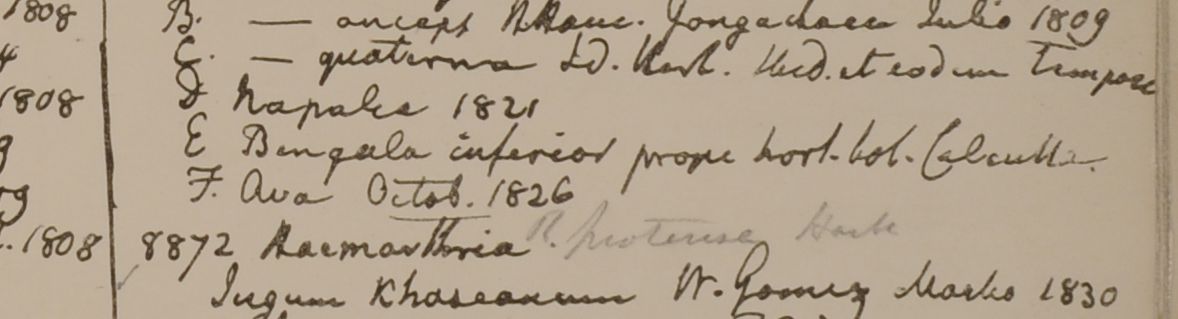 1808 B. — anceps Jongachaee Julio 1809
C. — quaterna Id. Herb. Ued. et eodem Tempore
1808 D Napalia 1821
E Bengala inferior prope hort. bot. Calcutta.
F. Ava Octob. 1826
1808 8872 Haemarthria R. protensa Hack
Jugum Khaseanum W. Gomez Martio 1830